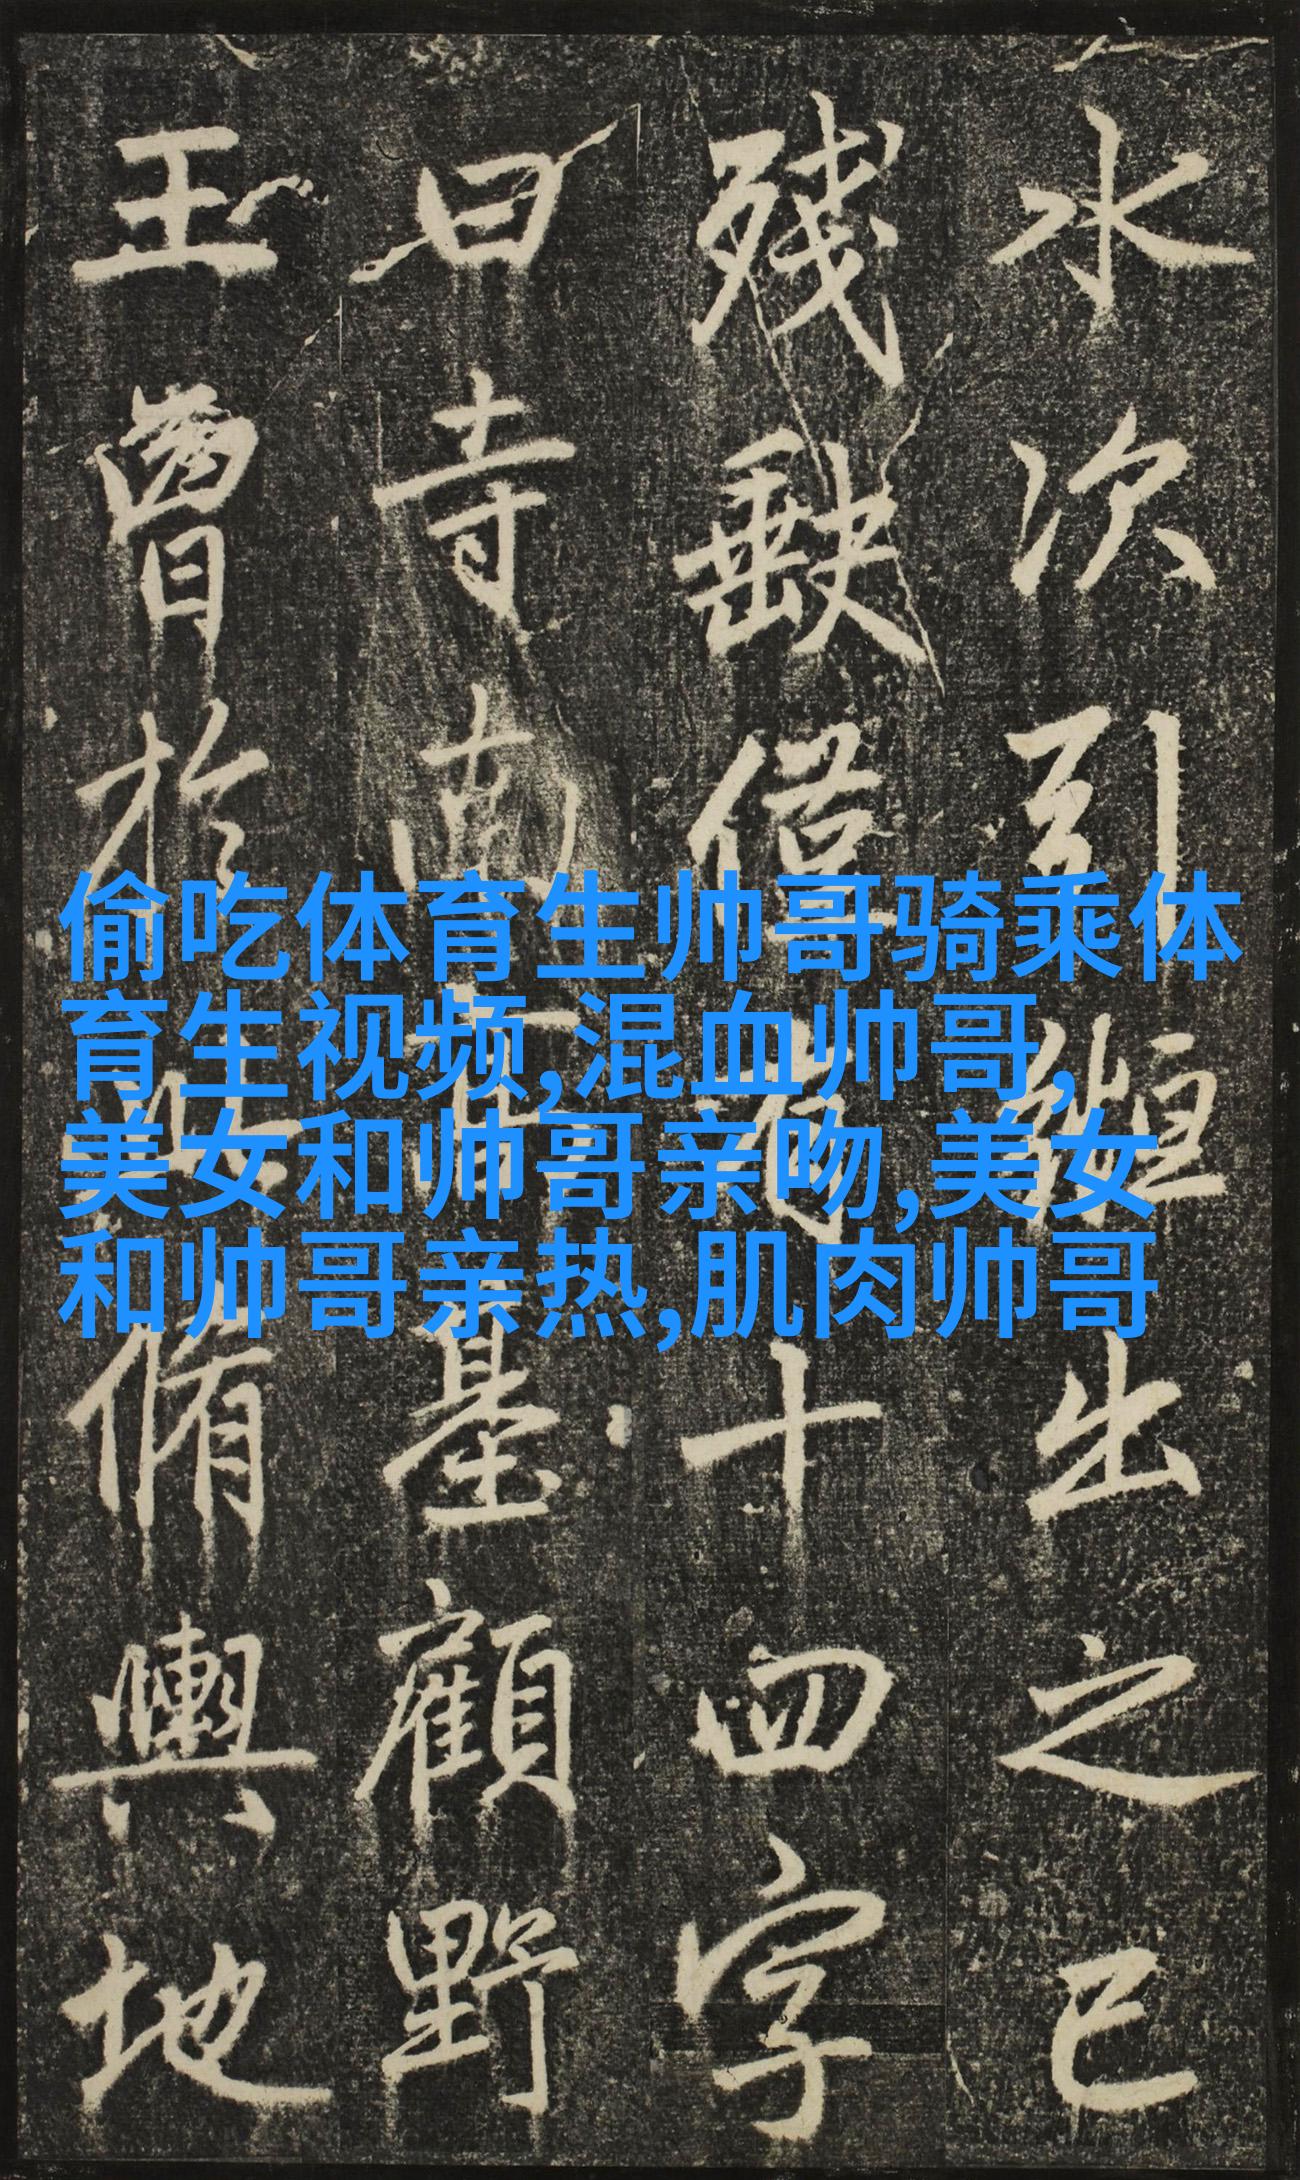 水次引緪出之已
殘缺僅十四字
曰寺南基顧野
王曾於此脩輿地
偷吃体育生帅哥骑乘体
育生视频,混血帅哥,
美女和帅哥亲吻,美女
和帅哥亲热,肌肉帅哥